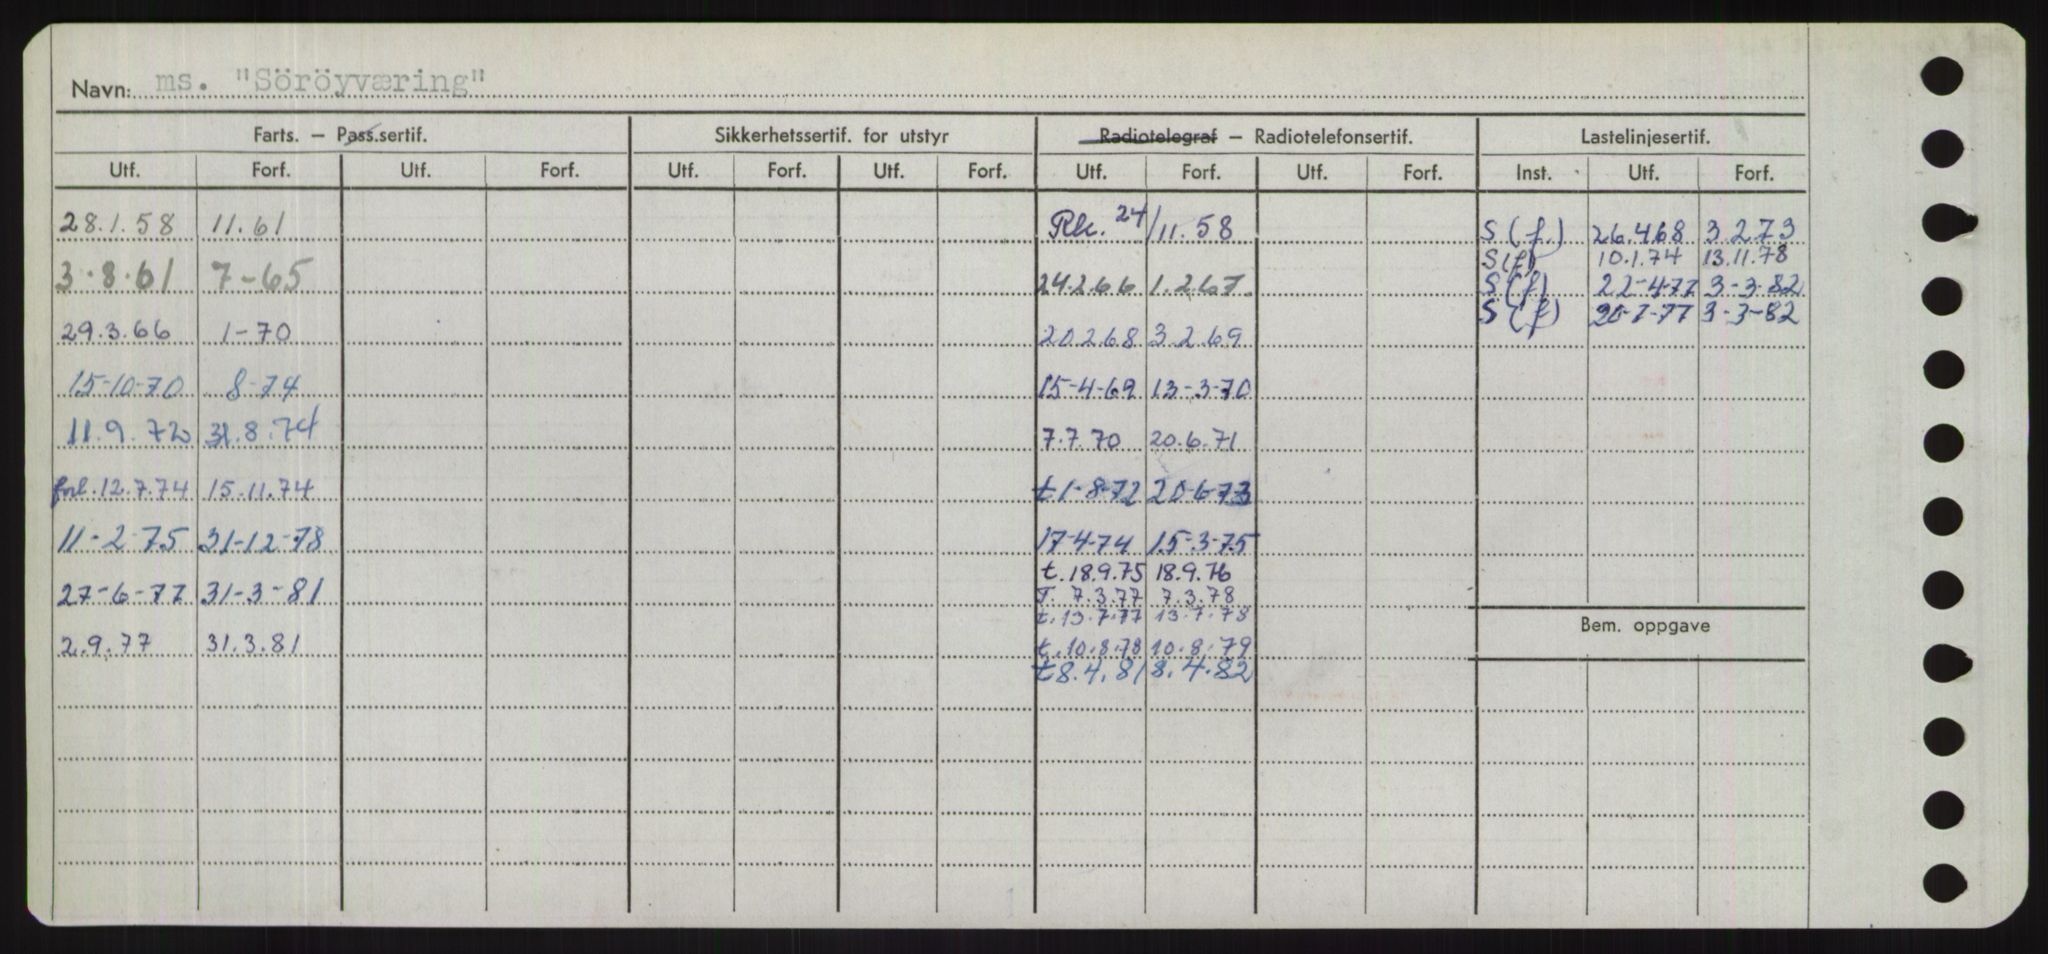 Navn: ms. "Söröyværing"
Farts. — Pass.sertif. Sikkerhetssertif. for utstyr Radiotelegraf — Radiotelefonsertif. Lastelinjesertif.
Utf. Forf. Utf. Forf. Utf. Forf. Utf. Forf. Utf. Forf. Utf. Forf. Inst. Utf. Forf.
28.1.58 11.61 Rk. 24/11.58 S (f.) 26.4.68 3.2.73
S (f) 10.1.74 13.11.78
3.8.61 7-65 24.2.66 1.2.67. S (f) 22-4-77 3-3-82
S (f) 20-7-77 3-3-82
29.3.66 1-70 20.2.68 3.2.69
15-10-70 8-74 15-4-69 13-3-70
11.9.72 31.8.74 7.7.70 20.6.71
forl. 12.7.74 15.11.74 t 1-8-72 20-6-73
11-2-75 31-12-78 17-4-74 15-3-75
t. 18.9.75 18.9.76
27-6-77 31-3-81 T. 7.3.77 7.3.78
t. 13.7.77 13.7.78
Bem. oppgave
2.9.77 31.3.81 t. 10.8.78 10.8.79
t 8.4.81 8.4.82